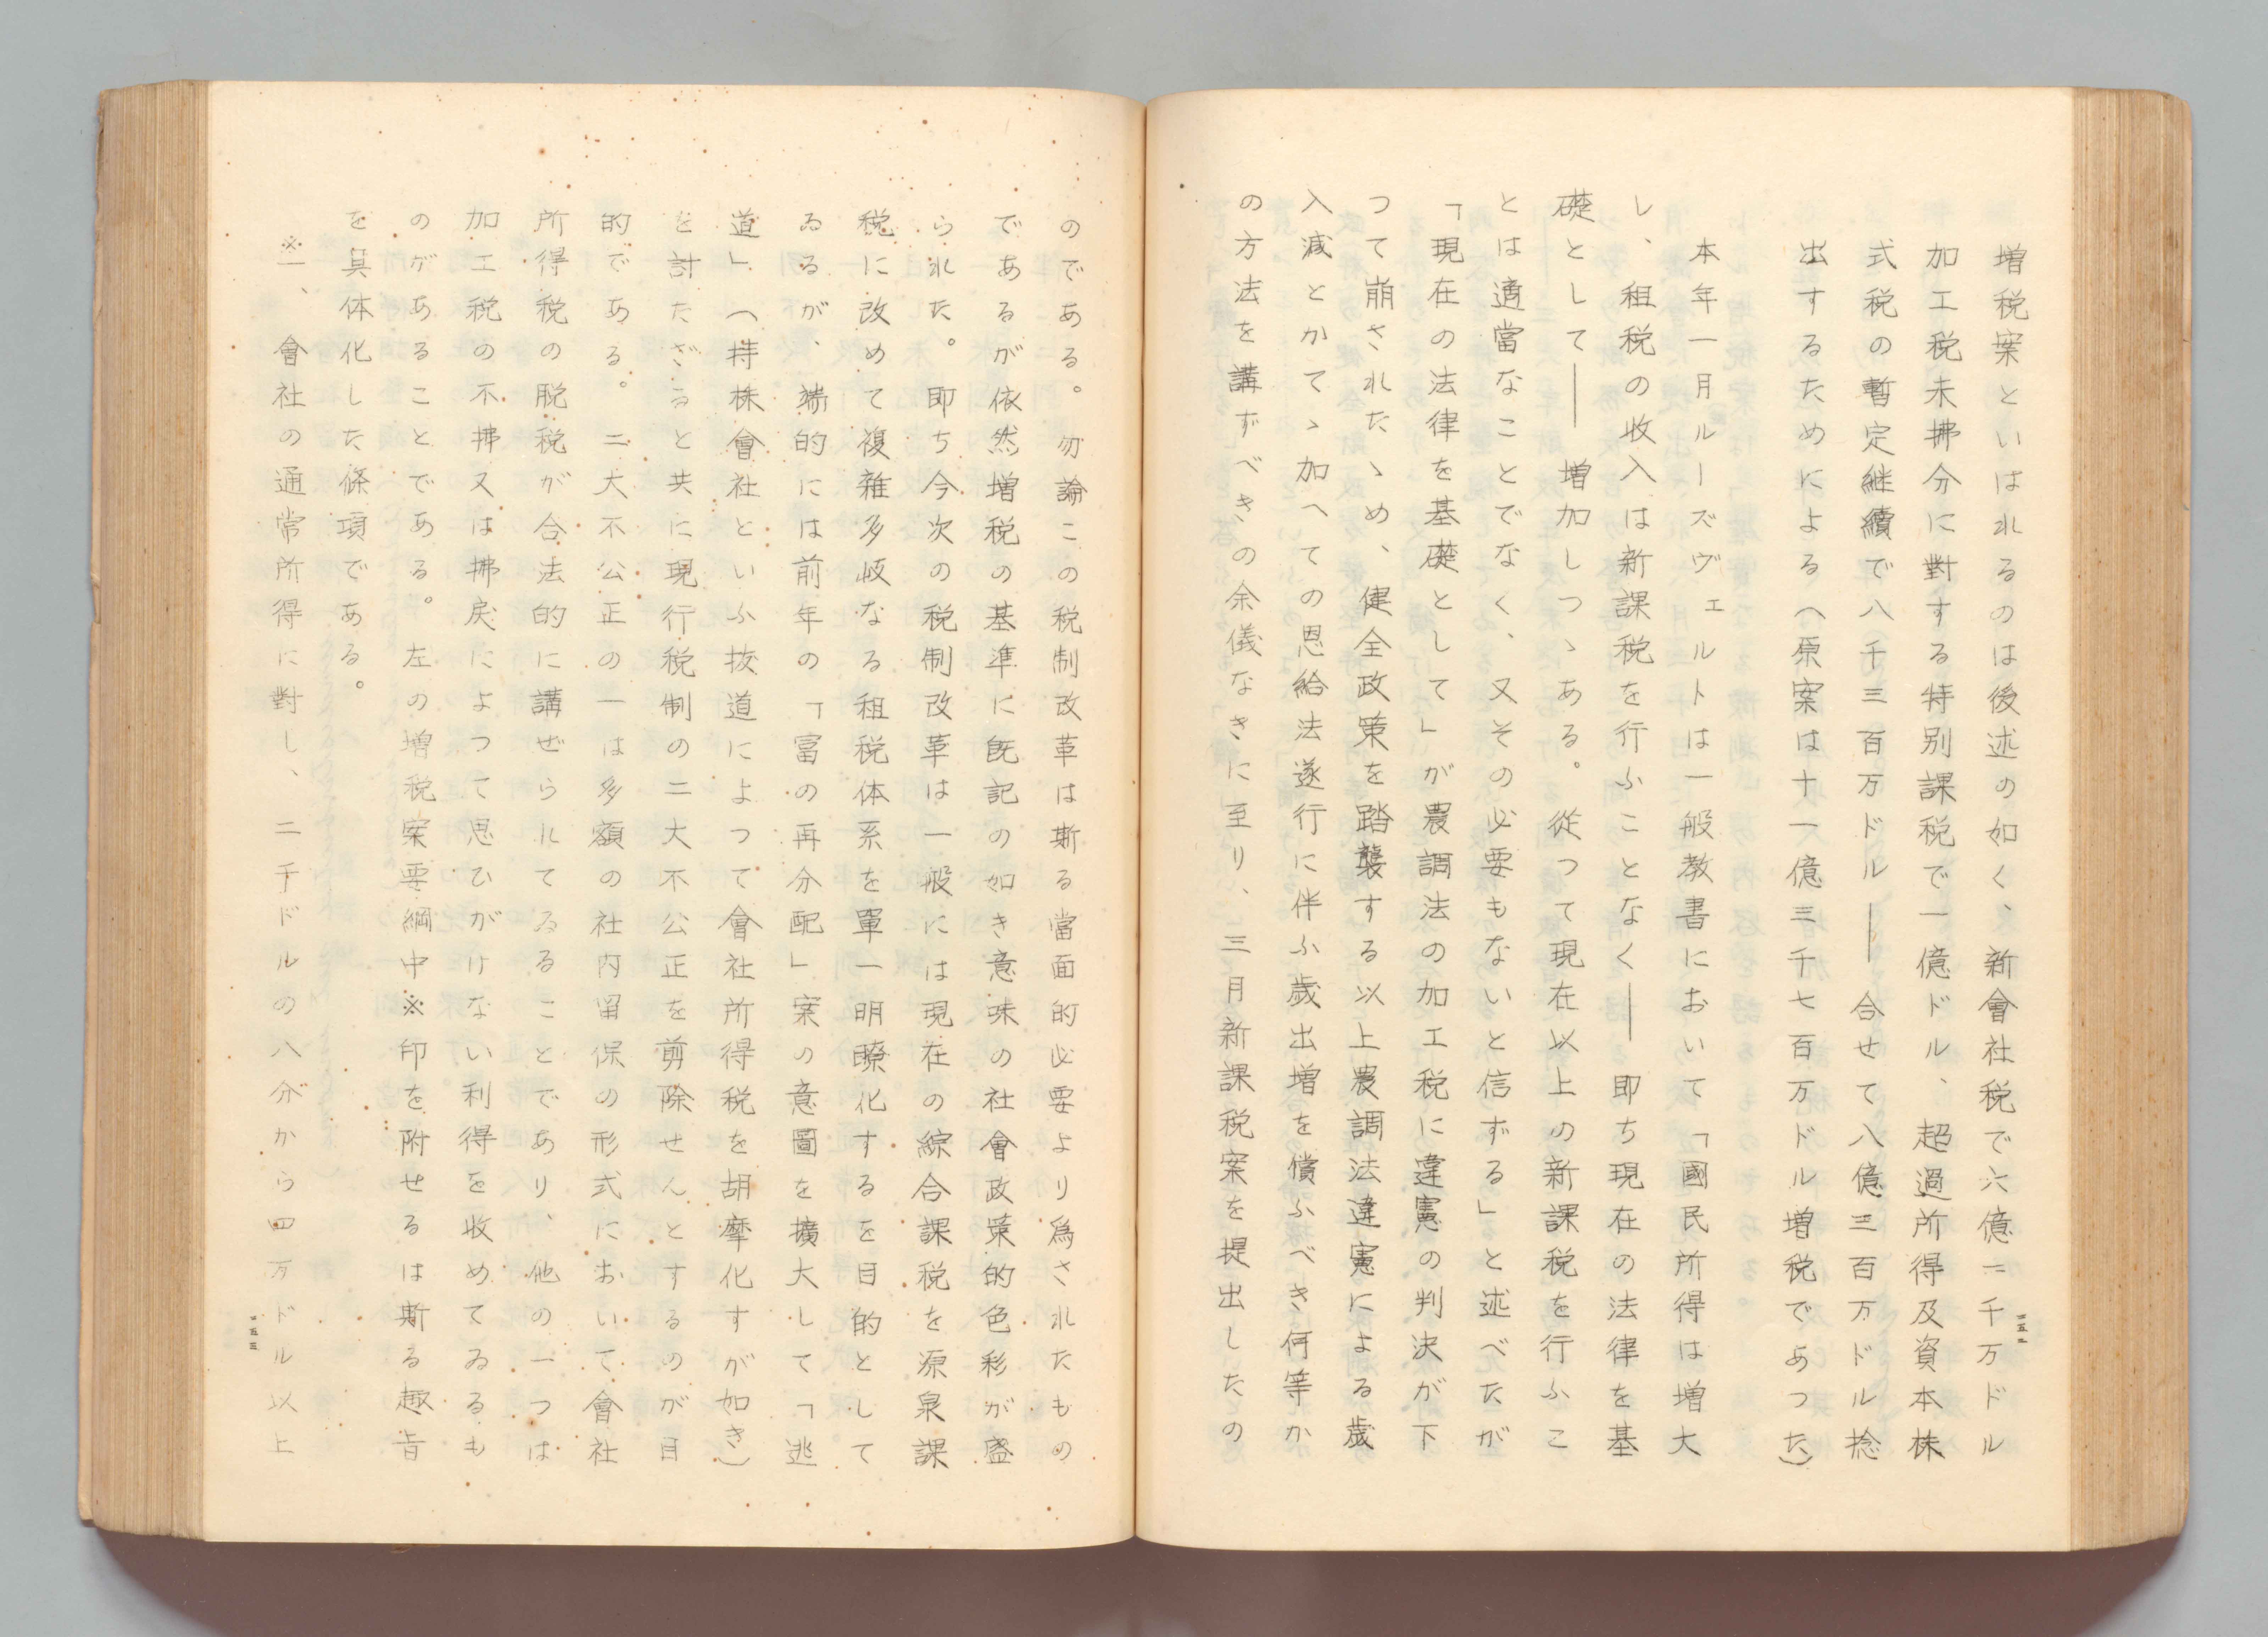 増税案といはれるのは後述の如く、新會社税で六億二千万ドル
加工税未拂分に對する特別課税で一億ドル、超過所得及資本株
式税の暫定継續で八千三百万ドル――合せて八億三百万ドル捻
出するためによる（原案は十一億三千七百万ドル増税であつた）
本年一月ルーズヴェルトは一般教書において「國民所得は増大
し、租税の收入は新課税を行ふことなく――即ち現在の法律を基
礎として――増加しつゝある。従つて現在以上の新課税を行ふこ
とは適當なことでなく、又その必要もないと信ずる」と述べたが
「現在の法律を基礎として」が農調法の加工税に違憲の判決が下
つて崩されたゝめ、健全政策を踏襲する以上農調法違憲による歳
入減とかてゝ加へての恩給法遂行に伴ふ歳出増を償ふべき何等か
の方法を講ずべきの余儀なきに至り、三月新課税案を提出したの
二五二
のである。勿論この税制改革は斯る當面的必要より爲されたもの
であるが依然増税の基準に既記の如き意味の社會政策的色彩が盛
られた。即ち今次の税制改革は一般には現在の綜合課税を源泉課
税に改めて複雑多岐なる租税体系を單一明瞭化するを目的として
ゐるが、端的には前年の「富の再分配」案の意圖を擴大して「逃
道」（持株會社といふ抜道によつて會社所得税を胡摩化すが如き）
を討たざると共に現行税制の二大不公正を剪除せんとするのが目
的である。二大不公正の一は多額の社内留保の形式において會社
所得税の脱税が合法的に講ぜられてゐることであり、他の一つは
加工税の不拂又は拂戻によつて思ひがけない利得を收めてゐるも
のがあることである。左の増税案要綱中※印を附せるは斯る趣旨
を具体化した條項である。
※一、會社の通常所得に對し、二千ドルの八分から四万ドル以上
二五三